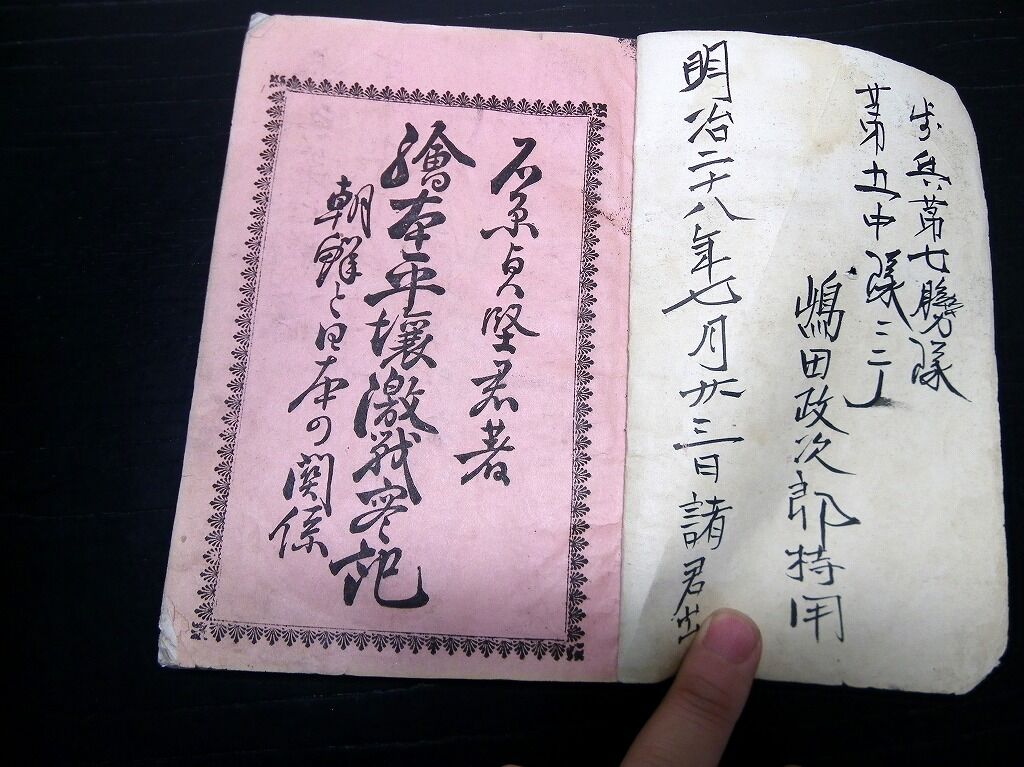 歩兵第七聯隊
第五中隊
嶋田政次郎持用
明治二十八年七月廿三日諸君
石原貞堅君著
繪本平壤激戦実記
朝鮮と日本の関係